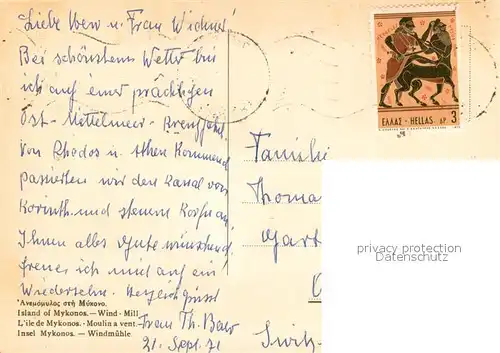 Liebe Herr u. Frau Wichser!
Bei schönstem Wetter bin
ich auf einer prächtigen
Ost-Mittelmeer-Kreuzfahrt.
Von Rhodos u. Athen kommend
passierten wir den Kanal von
Korinth und steuern Korfu an.
Ihnen alles Gute wünschend
freue ich mich auf ein
Wiedersehn. Herzlich grüsst
Frau Th.
21. Sept. 71
Ἀνεμόμυλος στὴ Μύκονο.
Island of Mykonos. — Wind - Mill
L'ile de Mykonos. - Moulin a vent.
Insel Mykonos. — Windmühle.
ΕΛΛΑΣ - HELLAS ΔΡ 3
Familie
Thoma
Gart
Switz
privacy protection